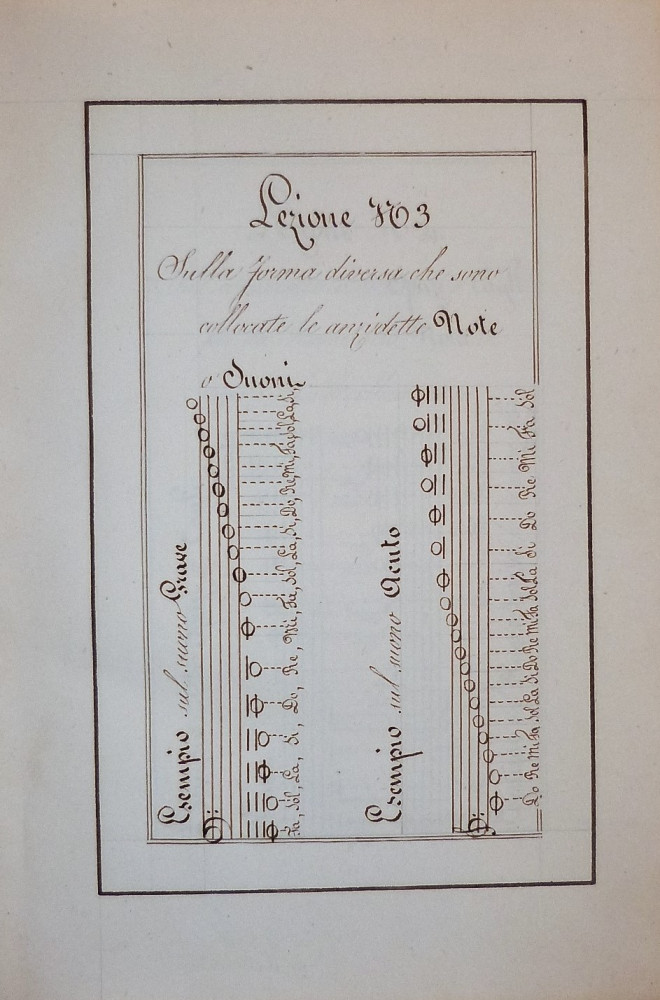 Lezione No 3
Sulla forma diversa che sono
collocate le anzidette Note
o Suoni
Esempio sul suono Grave
Fa, Sol, La, Si, Do, Re, Mi, Fa, Sol, La, Si, Do, Re, Mi, Fa, Sol, La, Si,
Esempio sul suono Acuto
Do Re Mi Fa Sol La Si Do Re Mi Fa Sol La Si Do Re Mi Fa Sol